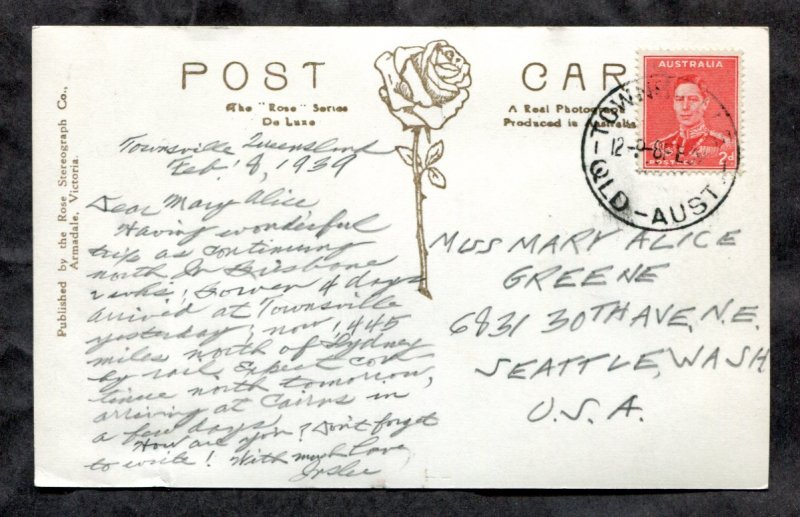 POST CARD
The "Rose" Series
De Luxe
A Real Photograph
Produced in Australia
Published by the Rose Stereograph Co.,
Armadale, Victoria.
AUSTRALIA
POSTAGE
2d
QLD-AUST
Townsville Queensland
Feb. 8, 1939
Dear Mary Alice
Having wonderful
trip as continuing
north. In Brisbane
2 wks; Bowen 4 days
arrived at Townsville
yesterday; now 1,445
miles north of Sydney
by rail. Expect con
tinue north tomorrow,
arriving at Cairns in
a few days.
How are you? Don't forget
to write! With much love
MISS MARY ALICE
GREENE
6831 30TH AVE, N.E.
SEATTLE, WASH
U.S.A.